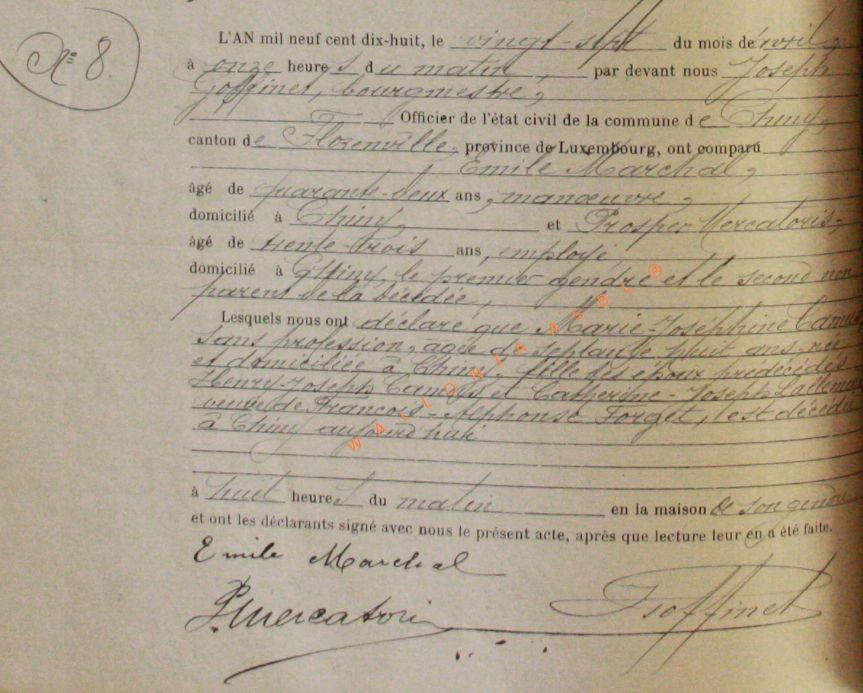 N° 8.
L'AN mil neuf cent dix-huit, le vingt-sept du mois de avril,
à onze heures du matin, par devant nous Joseph
Goffinet, bourgmestre,
Officier de l'état civil de la commune de Chiny,
canton de Florenville, province de Luxembourg, ont comparu
Emile Marchal,
âgé de quarante-deux ans, manœuvre,
domicilié à Chiny, et Prosper Mercatoris,
âgé de trente-trois ans, employé,
domicilié à Chiny, le premier gendre et le second non
parent de la décédée,
Lesquels nous ont déclaré que Marie-Joséphine
sans profession, agée de septante huit ans, née
et domiciliée à Chiny, fille des époux prédécédés
Henry-Joseph et Catherine-Joseph
veuve de François-Alphonse Forget, est décédée
à Chiny aujourd'hui
à huit heures du matin en la maison de son gendre
et ont les déclarants signé avec nous le présent acte, après que lecture leur en a été faite.
Emile Marchal
P. Mercatoris
J Goffinet
WALLONIA ASBL ©